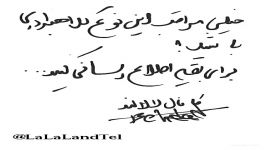 خیلی مراقب این نوع کلاهبرداری
باشید؟
برای بقیه اطلاع رسانی کنید...
کانال لالالند
@LaLaLandTel